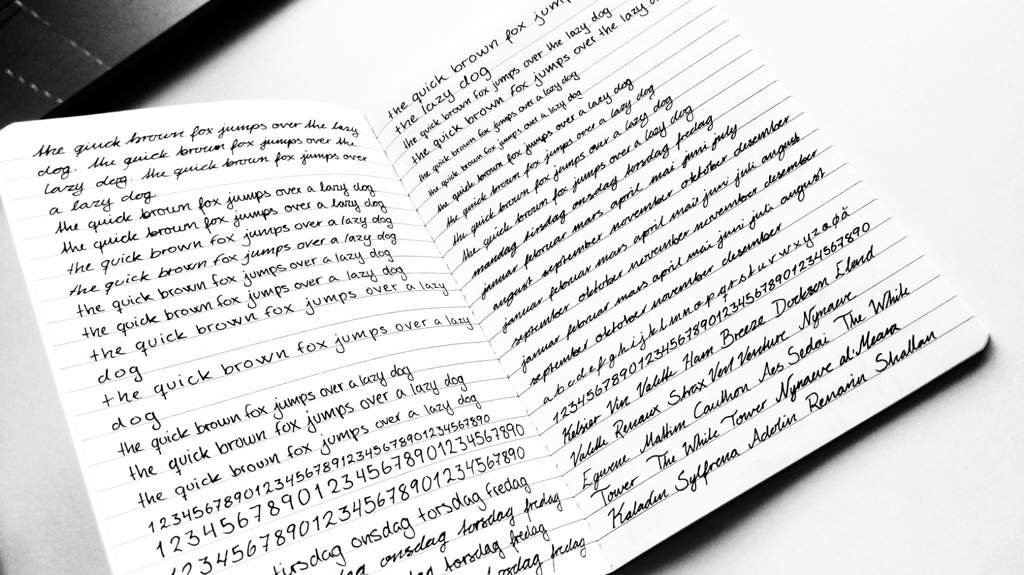 the quick brown fox jumps over the lazy
dog. the quick brown fox jumps over the
lazy dog. the quick brown fox jumps over
a lazy dog
the quick brown fox jumps over a lazy dog
the quick brown fox jumps over a lazy dog
the quick brown fox jumps over a lazy dog
the quick brown fox jumps over a lazy dog
the quick brown fox jumps over a lazy dog
the quick brown fox jumps over a lazy dog
the quick brown fox jumps over a lazy
dog
the quick brown fox jumps over a lazy
dog
the quick brown fox jumps over a lazy dog
the quick brown fox jumps over a lazy dog
the quick brown fox jumps over a lazy dog
123456789012345678901234567890
123456789012345678901234567890
123456789012345678901234567890
tirsdag onsdag torsdag fredag
onsdag torsdag fredag
torsdag fredag
torsdag fredag
the quick brown fox jump
the lazy dog
the quick brown fox jumps over the lazy dog
the quick brown fox jumps over the lazy
the quick brown fox jumps over a lazy dog
the quick brown fox jumps over a lazy dog
the quick brown fox jumps over a lazy dog
the quick brown fox jumps over a lazy dog
the quick brown fox jumps over a lazy dog
the quick brown fox jumps over a lazy dog
mandag tirsdag onsdag torsdag fredag
januar februar mars april mai juni july
august september november oktober desember
januar februar mars april mai juni juli august
september oktober november desember
januar februar mars april mai juni juli august
september oktober november desember
abcdefghijklmnopqrstuvwxyzæøå
123456789012345678901234567890
Kelsier Vin Valette Ham Breeze Dockson Elend
Valette Renoux Strax Vent Venture Nynaeve
Egwene Mathim Cauthon Aes Sedai The White
Tower The White Tower Nynaeve al'Meara
Kaladin Sylfrena Adolin Renarin Shallan